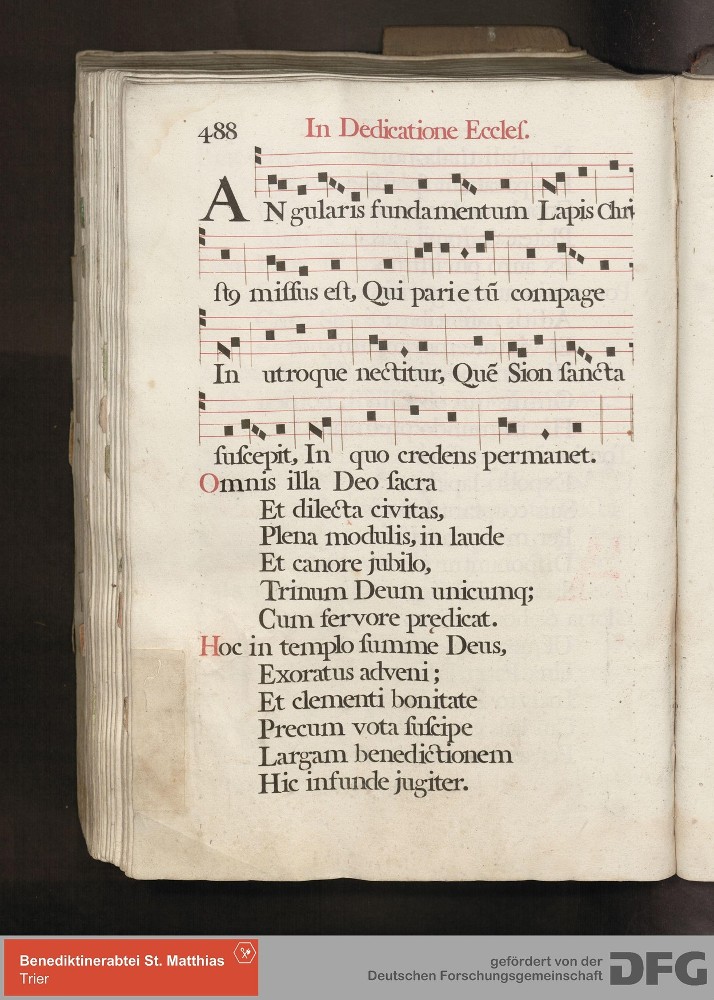 488 In Dedicatione Eccleſ.
ANgularis fundamentum Lapis Chri
ſtꝯ miſſus eſt, Qui parietū compage
In utroque nectitur, Quē Sion ſancta
ſuſcepit, In quo credens permanet.
Omnis illa Deo ſacra
Et dilecta civitas,
Plena modulis, in laude
Et canore jubilo,
Trinum Deum unicumq;
Cum fervore prędicat.
Hoc in templo ſumme Deus,
Exoratus adveni;
Et clementi bonitate
Precum vota ſuſcipe
Largam benedictionem
Hic infunde jugiter.
Benediktinerabtei St. Matthias
Trier
gefördert von der
Deutschen Forschungsgemeinschaft
DFG